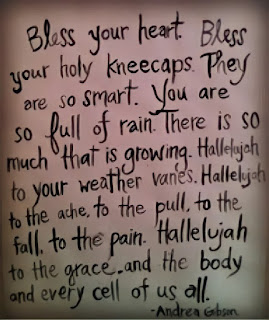 Bless your heart. Bless
your holy kneecaps. They
are so smart. You are
so full of rain. There is so
much that is growing. Hallelujah
to your weather vanes. Hallelujah
to the ache, to the pull, to the
fall, to the pain. Hallelujah
to the grace, and the body
and every cell of us all.
-Andrea Gibson